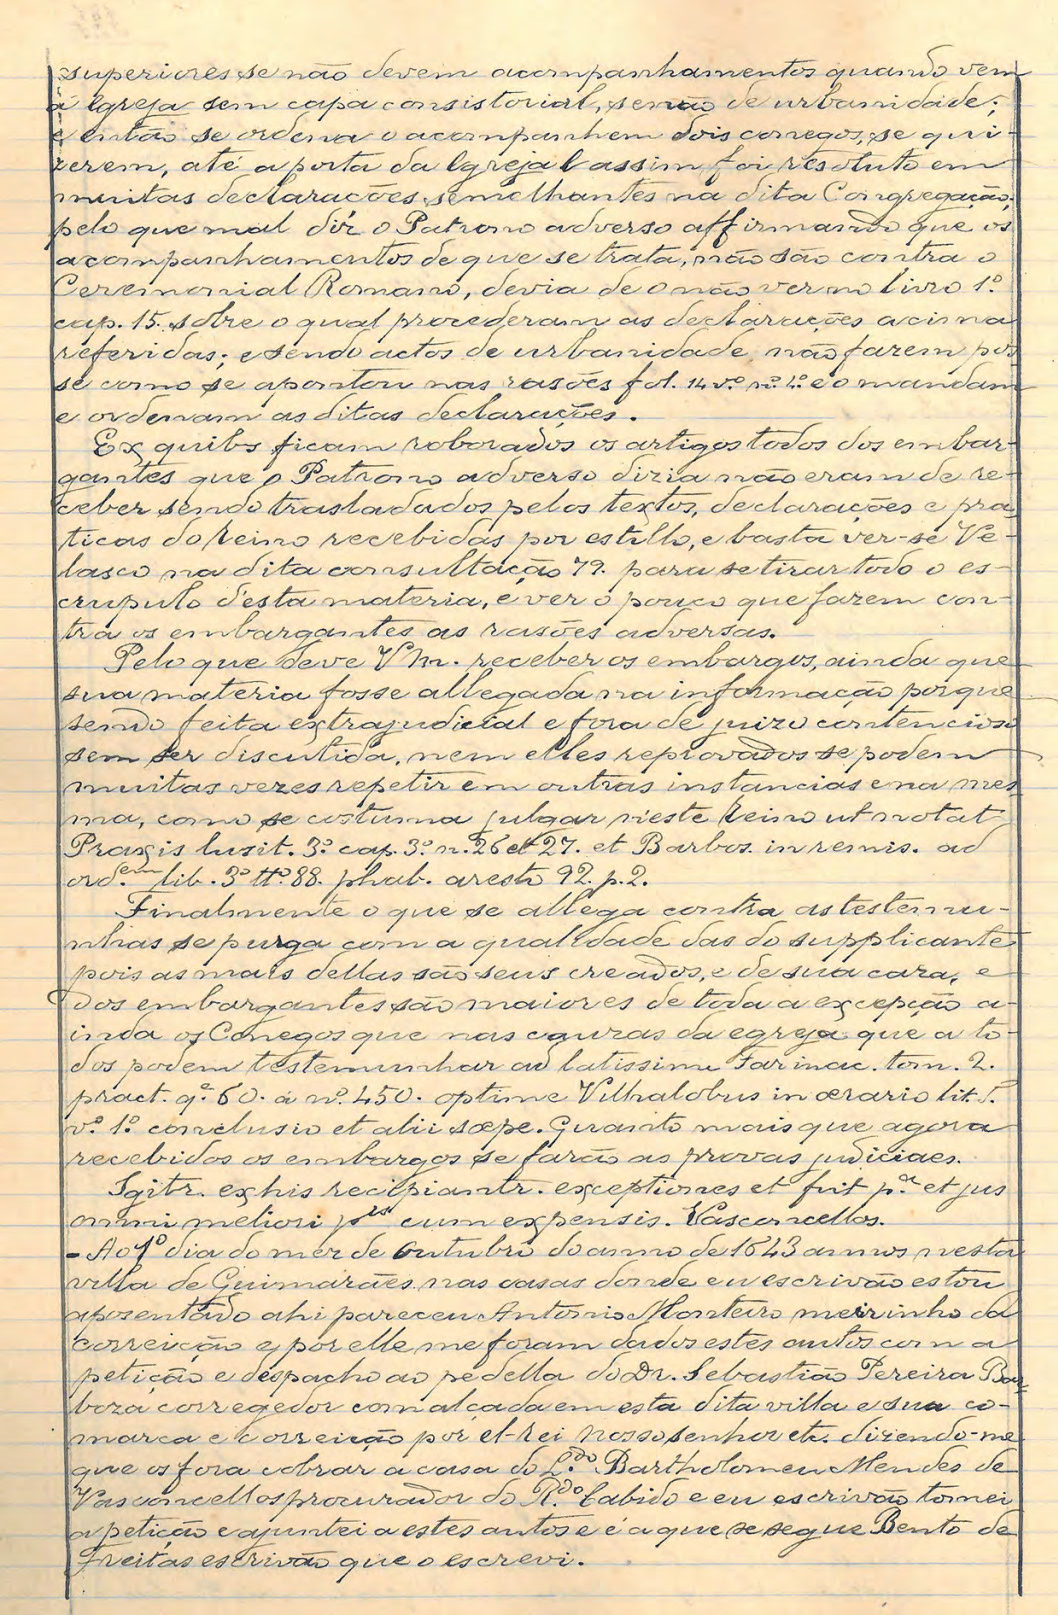 superiores se não devem acompanhamentos quando vem
á Egreja sem capa consistorial, senão de urbanidade;
e então se ordena o acompanhem dois conegos, se qui-
zerem, até a porta da Egreja E assim foi resoluto em
muitas declarações semelhantes na dita Congregação,
pelo que mal diz o Patrono adverso affirmando que os
acompanhamentos de que se trata, não são contra o
Ceremonial Romano, devia de o não ver no livro 1º
cap. 15. sobre o qual procederam as declarações acima
referidas; e sendo actos de urbanidade não fazem pos
se como se apontou nas rasões fol. 14 vº nº 4º e o mandam
e ordenam as ditas declarações.
Ex quibs ficam roborados os artigos todos dos embar-
gantes que o Patrono adverso dizia não eram de re-
ceber sendo trasladados pelos textos, declarações e pra
ticas do Reino recebidas por estillo, e basta ver-se Ve-
lasco na dita consultação 79. para se tirar todo o es-
crupulo d'esta materia, e ver o pouco que fazem con-
tra os embargantes as rasões adversas.
Pelo que deve V m. receber os embargos, ainda que
sua materia fosse allegada na informação porque
sendo feita extrajudicial e fora de juizo contencioso
sem ser discutida, nem elles reprovados se podem
muitas vezes repetir em outras instancias e na mes
ma, como se costuma julgar n'este Reino ut notat
Praxis lusit. 3º cap. 3º n. 26 et 27. et Barbos. in remis. ad
ord.em lib. 3º tto. 88. phab. aresto 92. p. 2.
Finalmente o que se allega contra as testemu-
nhas se purga com a qualidade das do supplicante
pois as mais dellas são seus creados, e de sua caza, e
dos embargantes são maiores de toda a excepção a-
inda os Conegos que nas couzas da egreja que a to-
dos podem testemunhar ad latissime Farinac. tom. 2.
pract. q.ª 60. a nº. 450. optime Vilhalobus in ærario lit. T.
nº. 1º. conclusio et alii sæpe. Quanto mais que agora
recebidos os embargos se farão as provas judiciaes.
Igitr. ex his recipiantr. exceptiones et fuit p.ª et jus
omni meliori p.les cum expensis. Vasconcellos.
- Ao 1º dia do mez de Outubro do anno de 1643 annos nesta
villa de Guimarães nas casas donde eu escrivão estou
aposentado ahi pareceu Antonio Monteiro meirinho da
correição e por elle me foram dados estes autos com a
petição e despacho ao pé della do Dr. Sebastião Pereira Bar
boza corregedor com alçada em esta dita villa e sua co-
marca e correição por el-rei nosso senhor etc. dizendo-me
que os fora cobrar a casa do L.do Bartholomeu Mendes de
Vasconcellos procurador do R.do Cabido e eu escrivão tomei
a petição e ajuntei a estes autos e é a que se segue Bento de
Freitas escrivão que o escrevi.